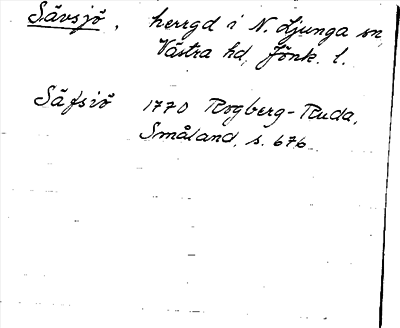 Sävsjö, herrgd i N. Ljunga sn,
Västra hd, Jönk. l.
Säfsiö 1770 Rogberg-Ruda,
Småland, s. 676